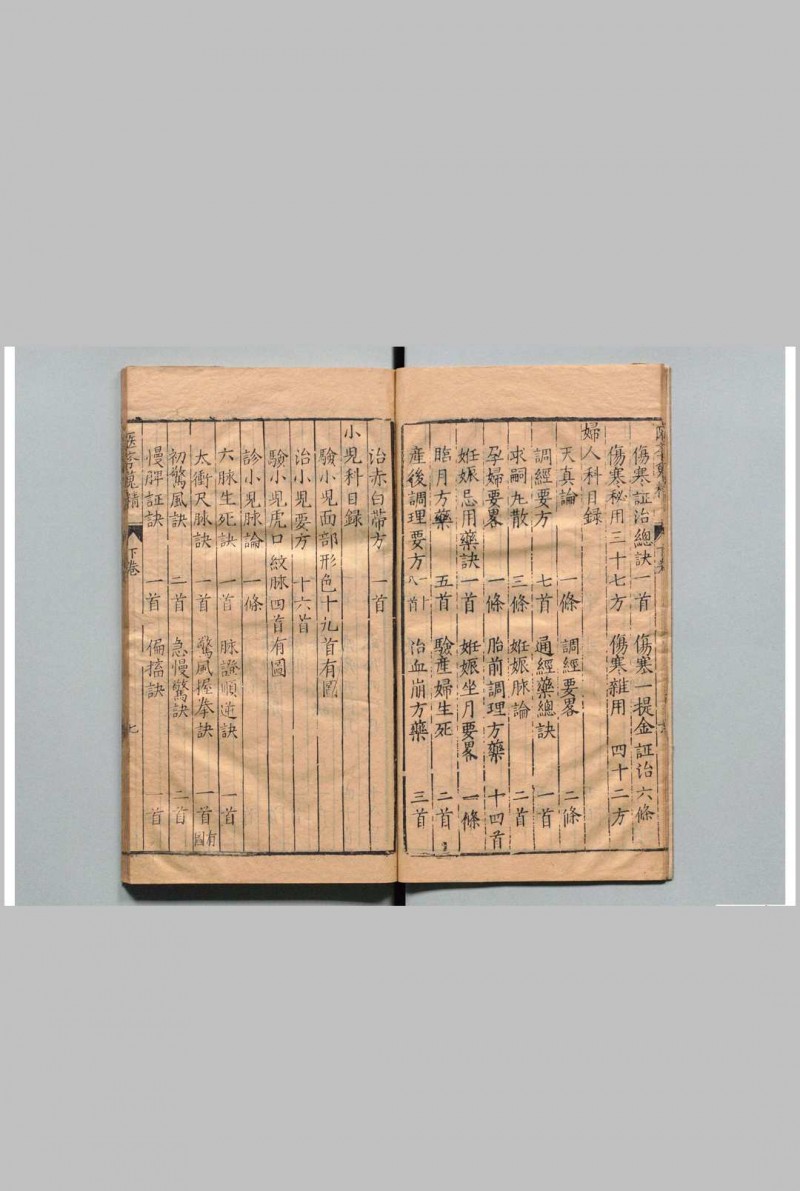 傷寒証治總訣 一首 傷寒一提金証治六條
傷寒秘用三十七方 傷寒雜用 四十二方
婦人科目録
天真論 一條 調經要畧 二條
調經要方 七首 通經藥總訣 一首
求嗣丸散 三條 妊娠脉論 二首
孕婦要畧 一條 胎前調理方藥 十四首
妊娠忌用藥訣 一首 妊娠坐月要畧 一條
臨月方藥 五首 驗産婦生死 二首
産後調理要方 十八首 治血崩方藥 三首
治赤白帶方 一首
小児科目録
驗小児面部形色十九首有圖
治小児要方 十六首
驗小児虎口紋脉四首有圖
診小児脉論 一條
六脉生死訣 一首 脉證順逆訣 一首
太衝尺脉訣 一首 驚風握拳訣 一首有圖
初驚風訣 二首 急慢驚訣 二首
慢脾証訣 一首 偏搐訣 一首
精 下卷 七